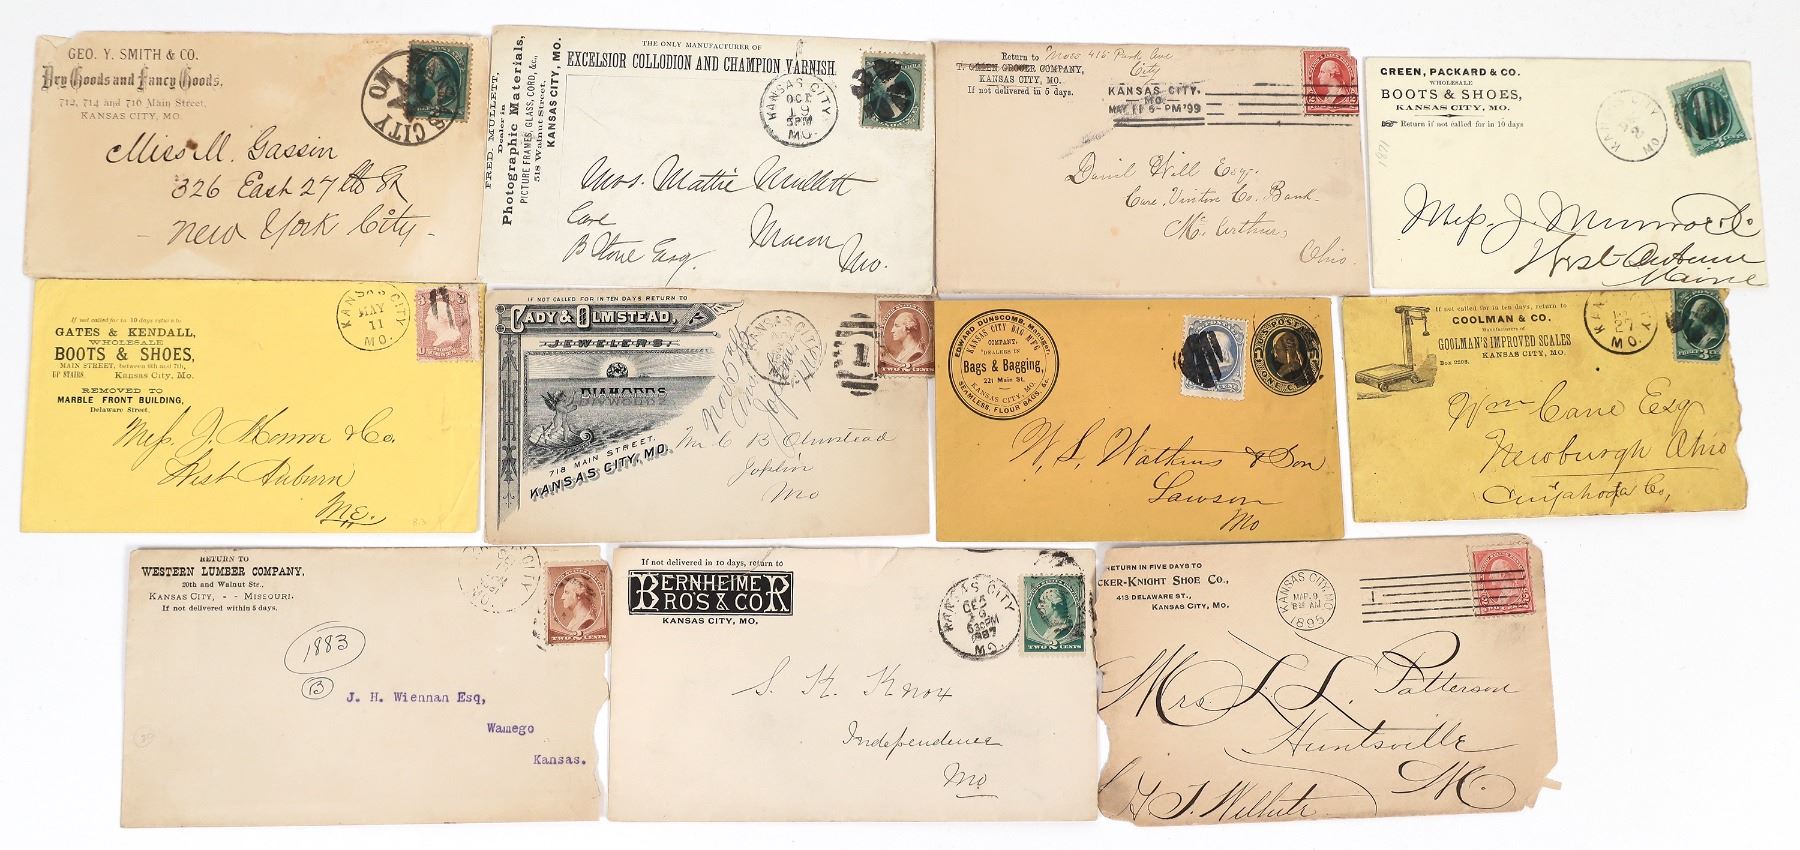 GEO. Y. SMITH & CO.
Dry Goods and Fancy Goods,
712, 714 and 716 Main Street,
KANSAS CITY, MO.
S CITY
MO
Miss M. Gassin
326 East 27th St
New York City
FRED. MULLETT,
Dealer in
Photographic Materials,
PICTURE FRAMES, GLASS, CORD, &c.,
518 Walnut Street,
KANSAS CITY, MO.
THE ONLY MANUFACTURER OF
EXCELSIOR COLLODION AND CHAMPION VARNISH.
KANSAS CITY
OCT
5PM
MO.
Mrs. Mattie Mullett
Care
B Stone Esq.
Macon
Mo.
Return to Moss 415 Park Ave
City
T. GREEN GROCER COMPANY,
KANSAS CITY, MO.
If not delivered in 5 days.
KANSAS CITY,
MO.
MAY 11 6-PM '99
David Will Esq.
Care Vinton Co. Bank
McArthur,
Ohio.
GREEN, PACKARD & CO.
WHOLESALE
BOOTS & SHOES,
KANSAS CITY, MO.
Return if not called for in 10 days
1871
KANSAS CITY
2
MO
Mess. J. Munroe & Co
West Auburn
Maine
If not called for in 10 days return to
GATES & KENDALL,
WHOLESALE
BOOTS & SHOES,
MAIN STREET, between 6th and 7th,
UP STAIRS. Kansas City, Mo.
REMOVED TO
MARBLE FRONT BUILDING,
Delaware Street,
KANSAS CITY
MAY
11
MO.
Mess J. Monroe & Co.
West Auburn
Me.
IF NOT CALLED FOR IN TEN DAYS RETURN TO
CADY & OLMSTEAD,
JEWELERS.
DIAMONDS
718 MAIN STREET.
KANSAS CITY, MO.
KANSAS CITY
1
TWO CENTS
Mr C B Olmstead
Joplin
Mo
EDWARD DUNSCOMB, Manager.
KANSAS CITY BAG MFG
COMPANY,
DEALERS IN
Bags & Bagging,
221 Main St.
KANSAS CITY, MO.
SEAMLESS, FLOUR BAGS, &c.
U.S. POSTAGE
ONE CENT
W. S. Watkins & Son
Lawson
Mo
If not called for in ten days, return to
COOLMAN & CO.
Manufacturers of
GOOLMAN'S IMPROVED SCALES
KANSAS CITY, MO.
Box 2208.
27
MO.
Wm Cane Esq
Newburgh Ohio
Cuyahoga Co,
RETURN TO
WESTERN LUMBER COMPANY,
20th and Walnut Sts.,
KANSAS CITY, - - MISSOURI.
If not delivered within 5 days.
CITY
MO.
TWO CENTS
1883
B
J. H. Wiennan Esq,
Wamego
Kansas.
If not delivered in 10 days, return to
BERNHEIMER
BRO'S & CO
KANSAS CITY, MO.
KANSAS CITY
DEC
19
630PM
1887
MO.
TWO CENTS
S. K. Knox
Independence
Mo
RETURN IN FIVE DAYS TO
CKER-KNIGHT SHOE CO.,
413 DELAWARE ST.,
KANSAS CITY, MO.
KANSAS CITY, MO.
MAR. 9
1895
Mrs. L. L. Patterson
Huntsville
Mo.